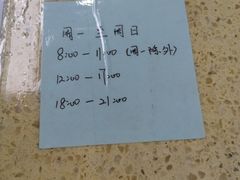 周一至周日
8:00—11:00 (周一除外)
12:00—17:00
18:00—21:00